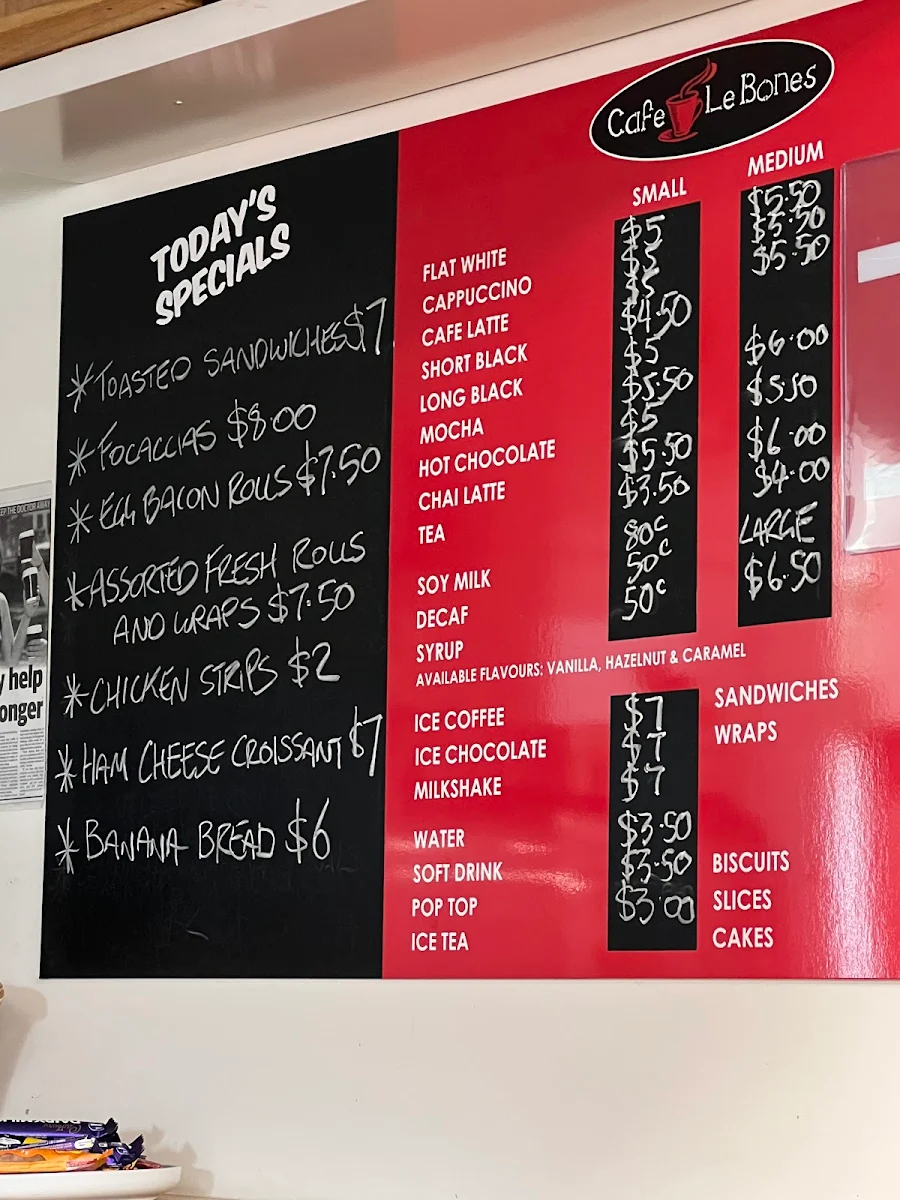 Cafe Le Bones
TODAY'S
SPECIALS
* TOASTED SANDWICHES $7
* FOCACCIAS $8.00
* EGG BACON ROLLS $7.50
* ASSORTED FRESH ROLLS
AND WRAPS $7.50
* CHICKEN STRIPS $2
* HAM CHEESE CROISSANT $7
* BANANA BREAD $6
SMALL
MEDIUM
FLAT WHITE $5 $5.50
CAPPUCCINO $5 $5.50
CAFE LATTE $5 $5.50
SHORT BLACK $4.50
LONG BLACK $5
MOCHA $5.50 $6.00
HOT CHOCOLATE $5 $5.50
CHAI LATTE $5.50 $6.00
TEA $3.50 $4.00
SOY MILK 80c
DECAF 50c
SYRUP 50c
LARGE
$6.50
AVAILABLE FLAVOURS: VANILLA, HAZELNUT & CARAMEL
ICE COFFEE $7
ICE CHOCOLATE $7
MILKSHAKE $7
WATER $3.50
SOFT DRINK $3.50
POP TOP $3.00
ICE TEA
SANDWICHES
WRAPS
BISCUITS
SLICES
CAKES
EP THE DOCTOR AWAY
y help
onger